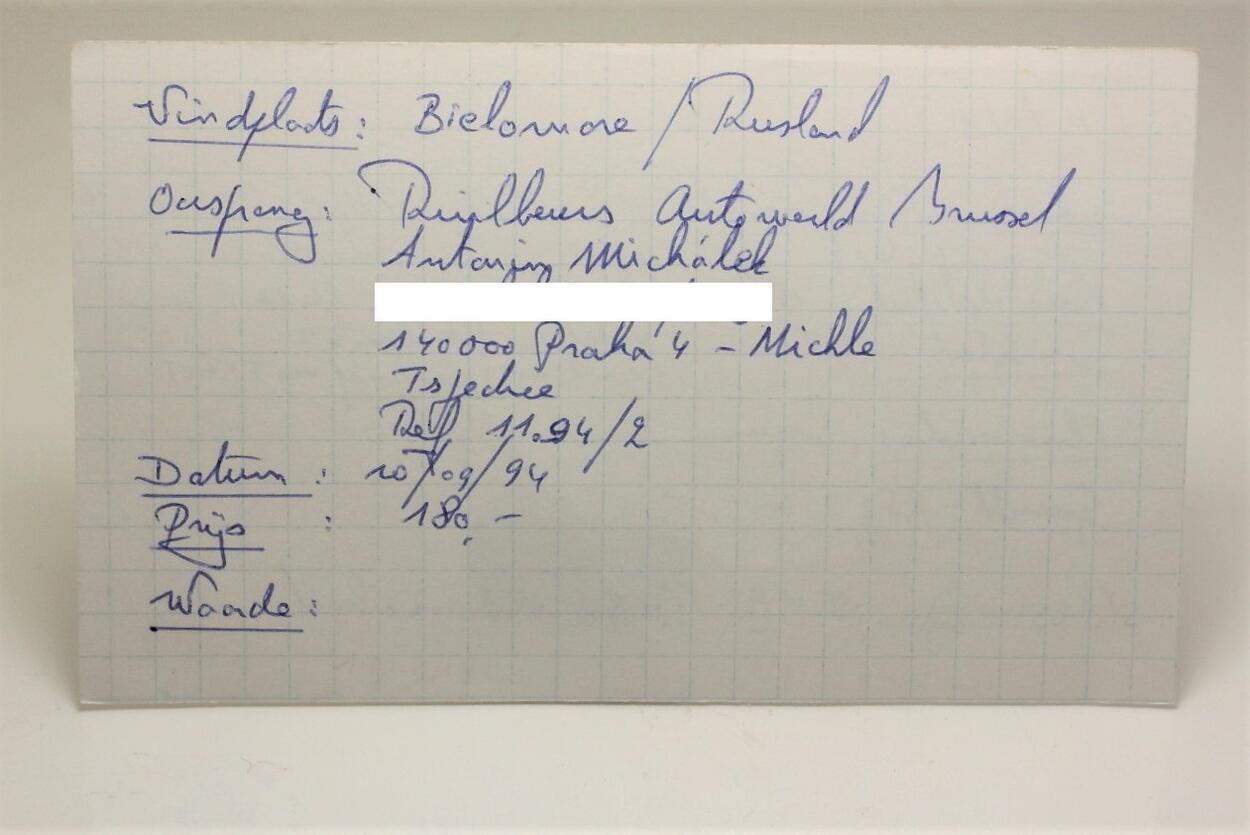 Vindplaats: Bielomore / Rusland
Oorsprong: Ruilbeurs Autoworld Brussel
Antonjn Michálek
140000 Praha 4 - Michle
Tsjechee
Ref 11.94/2
Datum : 10/09/94
Prijs : 180,-
Waarde: